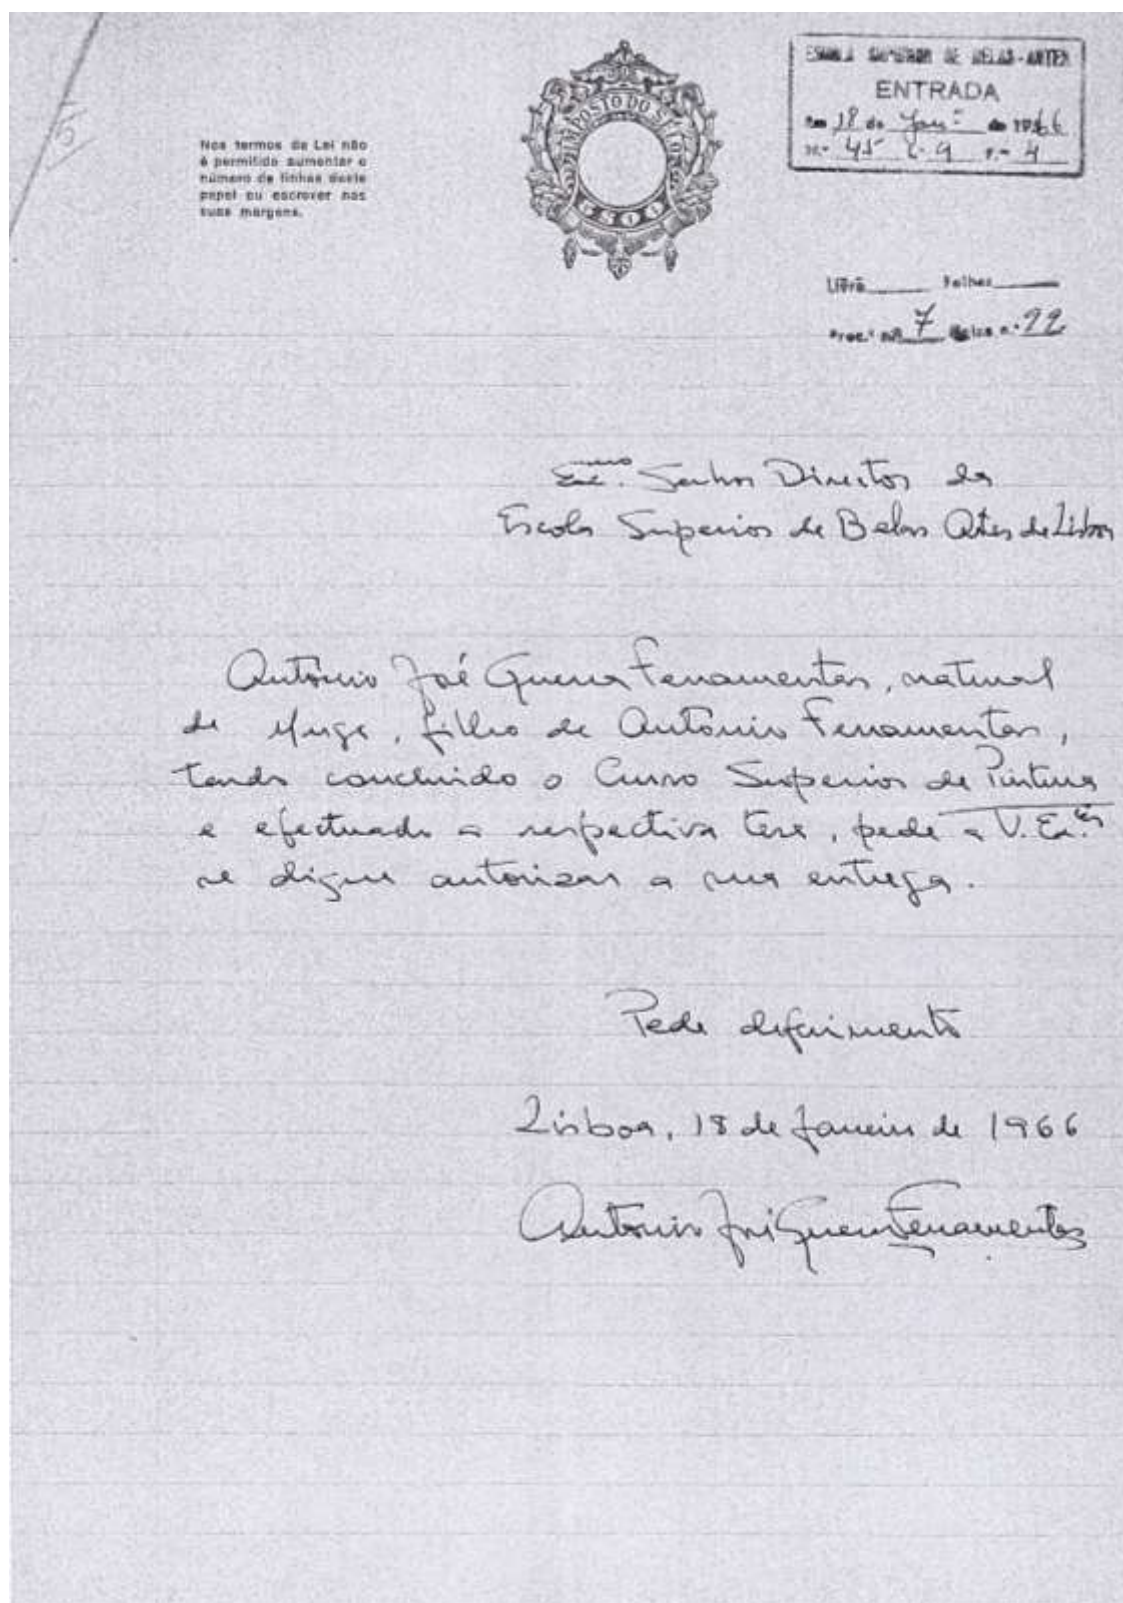 Nos termos da Lei não
é permitido aumentar o
número de linhas deste
papel ou escrever nas
suas margens.
IMPOSTO DO SELO
ESCOLA SUPERIOR DE BELAS-ARTES
ENTRADA
em 18 de Jan.º de 1966
N.º 45 L.º 9 F.º 4
Livro Folhas
Proc.º nº 7 Caixa n.º 22
Exc.mo Senhor Director da
Escola Superior de Belas Artes de Lisboa
António José Guerra Ferramentas, natural
de Muge, filho de António Ferramentas,
tendo concluido o Curso Superior de Pintura
e efectuado a respectiva tese, pede a V. Ex.ª
se digne autorizar a sua entrega.
Pede deferimento
Lisboa, 18 de Janeiro de 1966
António José Guerra Ferramentas